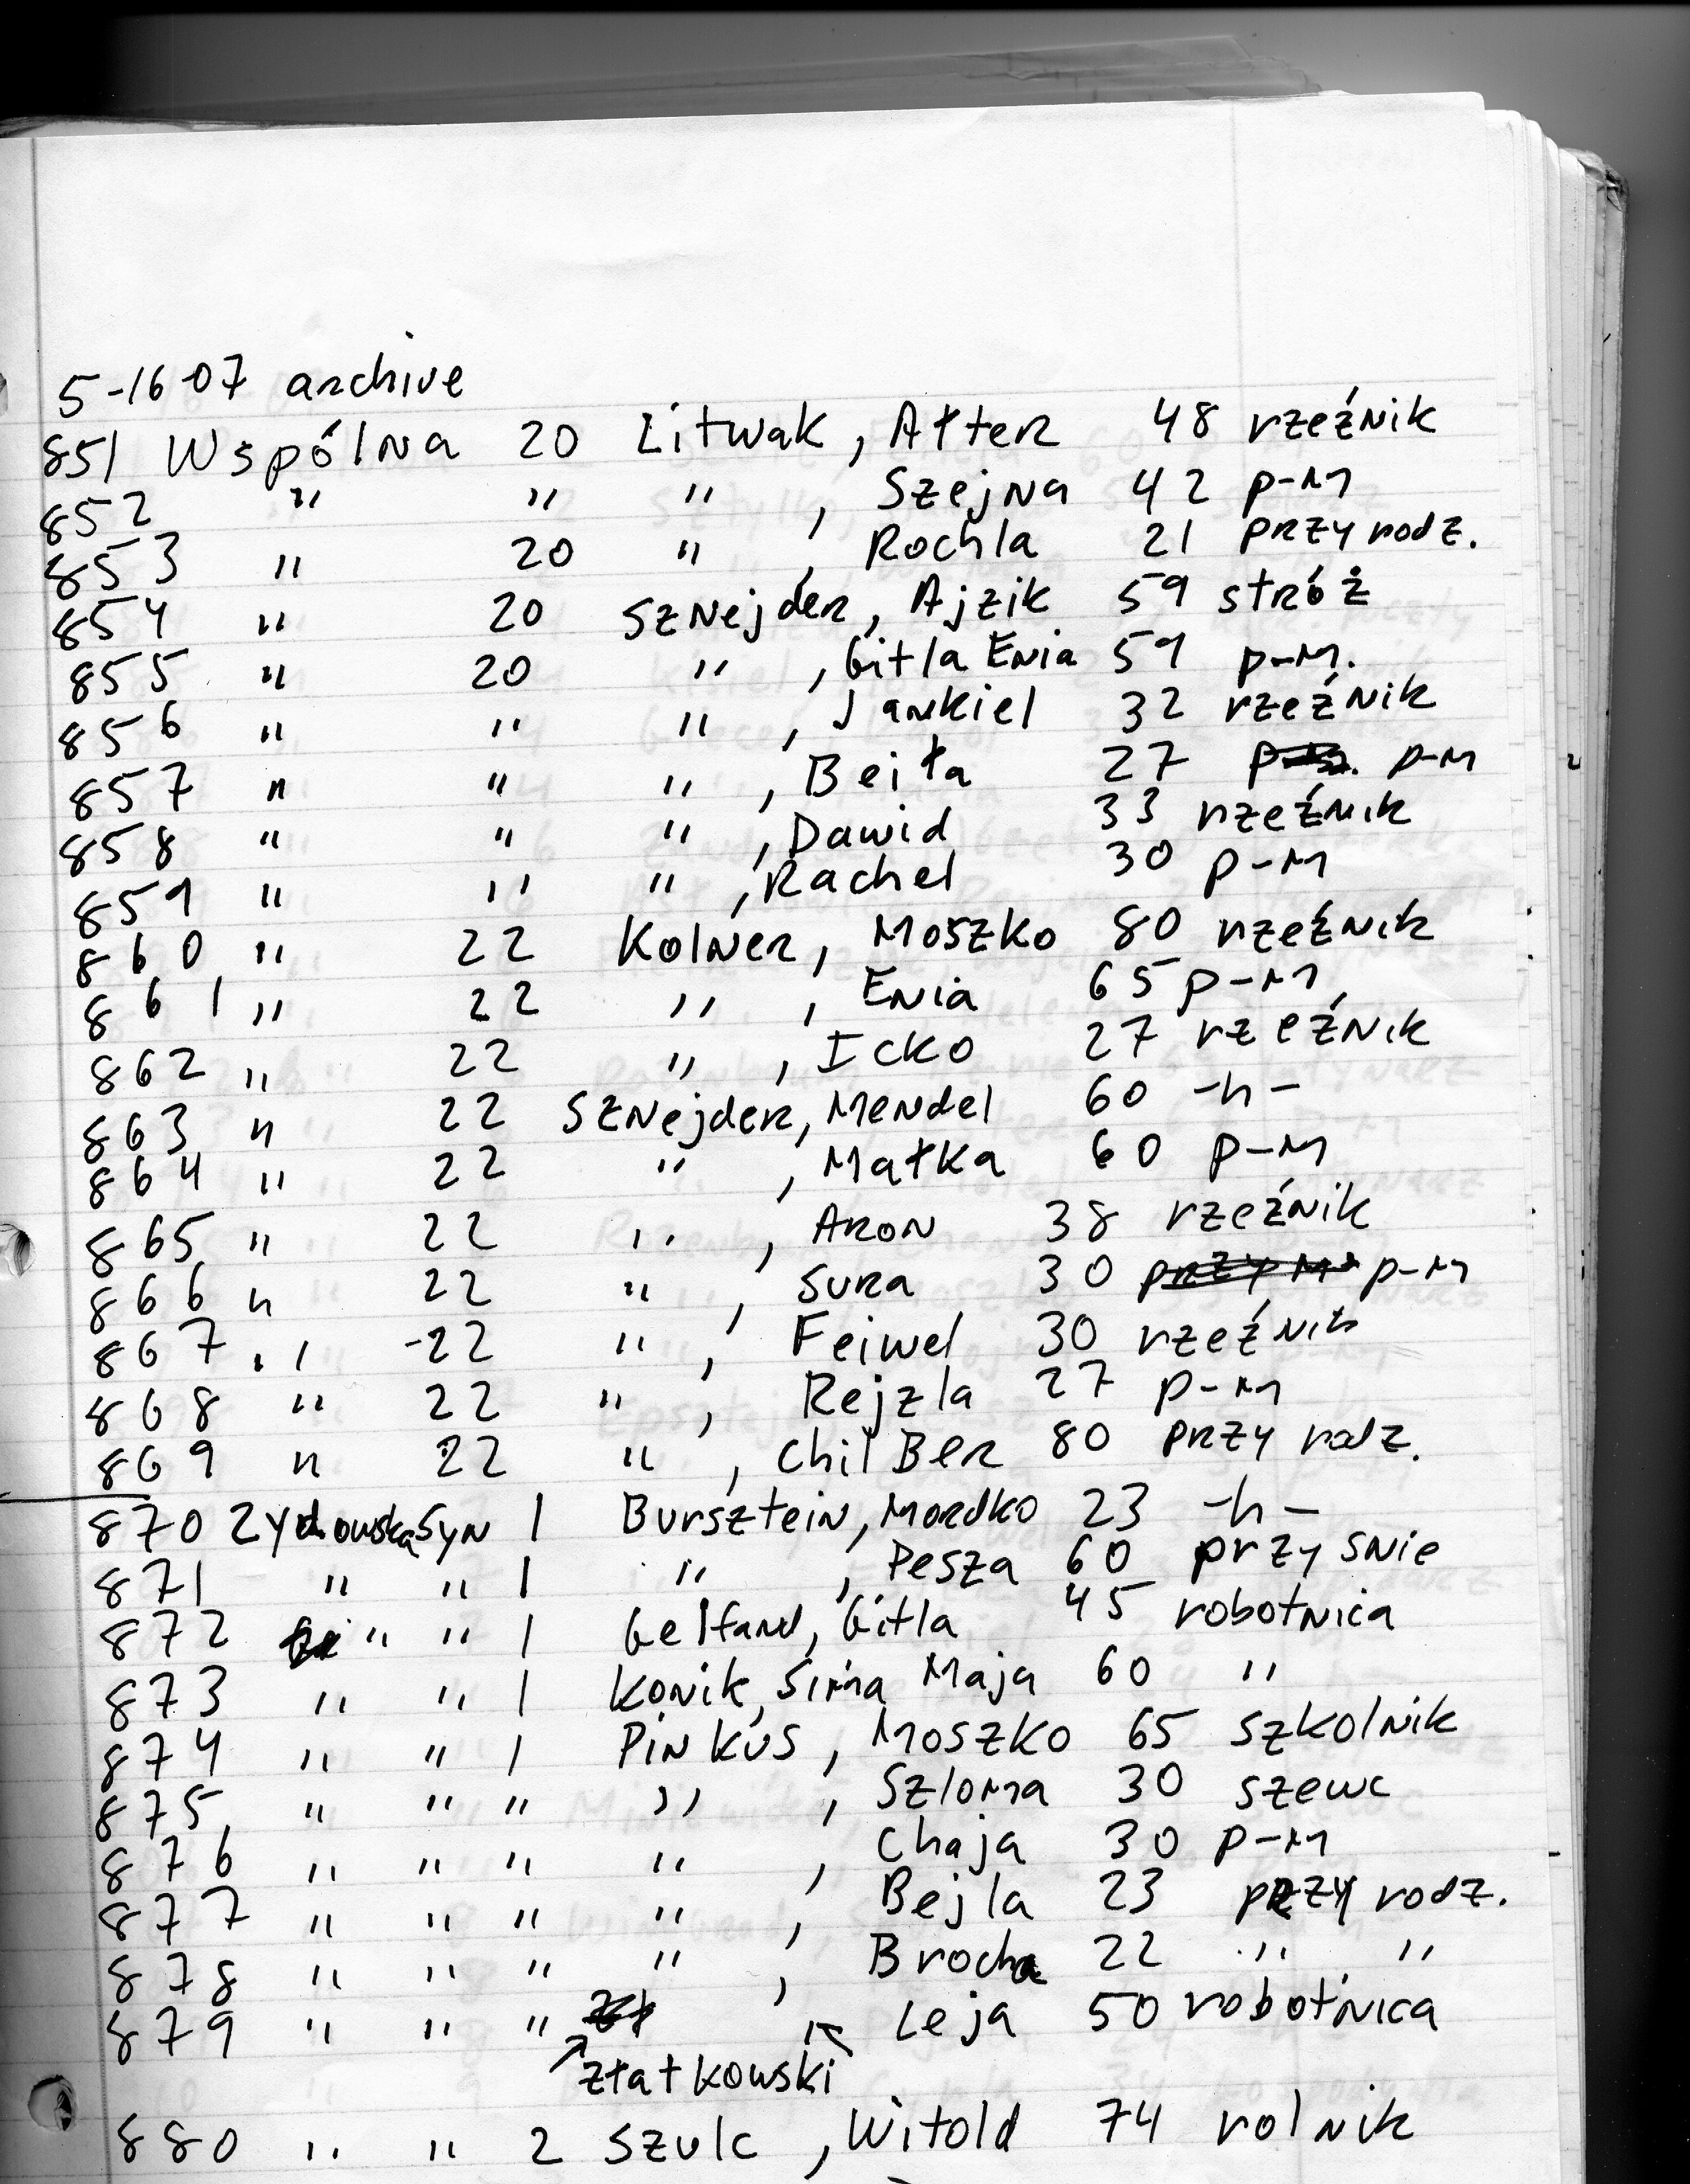 5-16-07 archive
851 Wspólna 20 Litwak, Ałter 48 rzeźnik
852 " " " , Szejna 42 p-m
853 " 20 " , Rochla 21 przy rodz.
854 " 20 Sznejder, Ajzik 59 stróż
855 " 20 " , Gitla Enia 59 p-m.
856 " " " , Jankiel 32 rzeźnik
857 " " " , Beiła 27 p-m
858 " " " , Dawid 33 rzeźnik
859 " " " , Rachel 30 p-m
860 " 22 Kolner, Moszko 80 rzeźnik
861 " 22 " , Enia 65 p-m
862 " 22 " , Icko 27 rzeźnik
863 " 22 Sznejder, Mendel 60 -h-
864 " 22 " , Małka 60 p-m
865 " 22 " , Aron 38 rzeźnik
866 " 22 " , Sura 30 p-m
867 " 22 " , Feiwel 30 rzeźnik
868 " 22 " , Rejzla 27 p-m
869 " 22 " , Chil Ber 80 przy rodz.
870 Zydowska Syn 1 Bursztein, Mordko 23 -h-
871 " " 1 " , Pesza 60 przy snie
872 " " 1 Gelfand, Gitla 45 robotnica
873 " " 1 Konik, Sima Maja 60 "
874 " " 1 Pinkus, Moszko 65 szkolnik
875 " " " " , Szloma 30 szewc
876 " " " " , Chaja 30 p-m
877 " " " " , Bejla 23 przy rodz.
878 " " " " , Brocha 22 " "
879 " " " , Leja 50 robotnica
złatkowski
880 " " 2 Szulc, Witold 74 rolnik